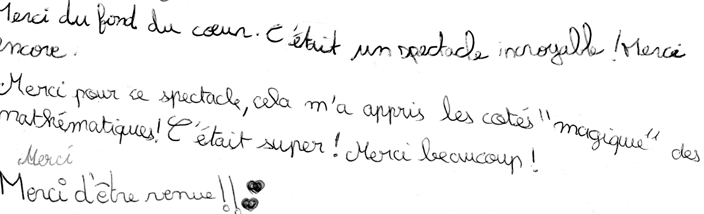 Merci du fond du cœur. C'était un spectacle incroyable ! Merci
encore.
Merci pour ce spectacle, cela m'a appris les cotés "magique" des
mathématiques! C'était super ! Merci beaucoup !
Merci
Merci d'être venue !!